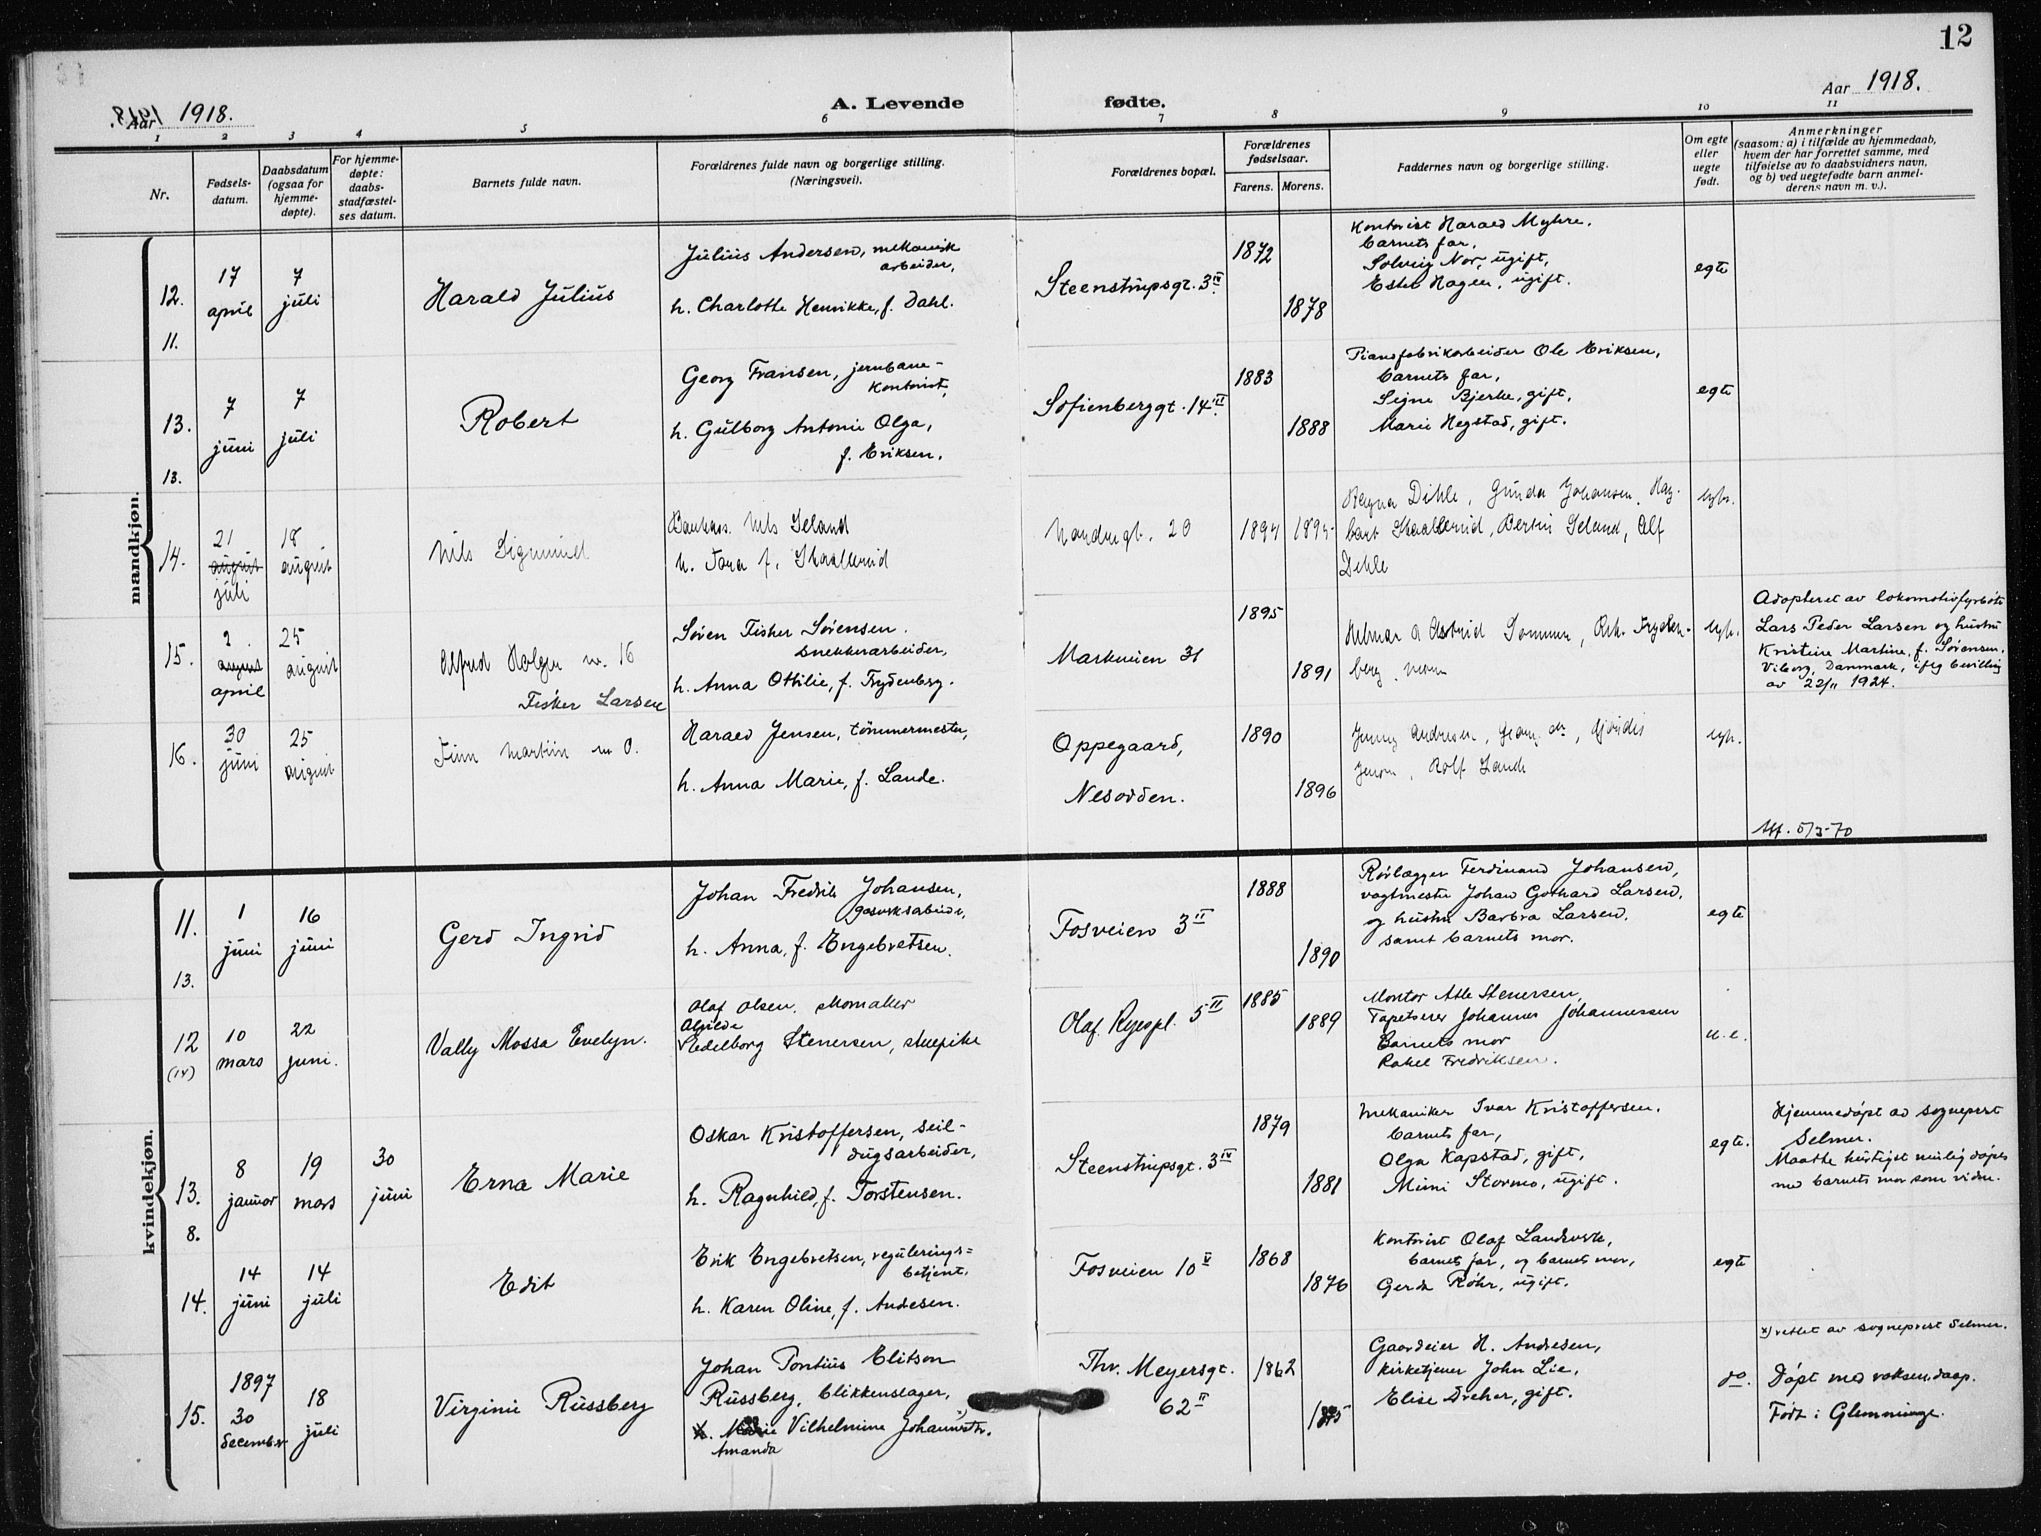 12
Aar 1918.
A. Levende fødte.
Aar 1918.
1 2 3 4 5 6 7 8 9 10 11
Nr.
Fødsels-
datum.
Daabsdatum
(ogsaa for
hjemme-
døpte).
For hjemme-
døpte:
daabs-
stadfæstel-
ses datum.
Barnets fulde navn.
Forældrenes fulde navn og borgerlige stilling.
(Næringsvei).
Forældrenes bopæl.
Forældrenes
fødselsaar.
Farens. Morens.
Faddernes navn og borgerlige stilling.
Om egte
eller
uegte
født.
Anmerkninger
(saasom: a) i tilfælde av hjemmedaab,
hvem der har forrettet samme, med
tilføielse av to daabsvidners navn,
og b) ved uegtefødte barn anmel-
derens navn m. v.).
mandkjøn.
12.
11.
17
april
7
juli
Harald Julius
Julius Andersen, mekanisk
arbeider,
h. Charlotte Henrikke, f. Dahl.
Steenstrupsgt. 3 IV
1872
1878
Kontorist Harald Myhre.
barnets far,
Solveig Nor, ugift,
Ester Hagen, ugift.
egte
13.
13.
7
juni
7
juli
Robert
Georg Fransen, jernbane-
kontorist,
h. Gulborg Antonie Olga,
f. Eriksen.
Sofienberggt. 14 III
1883
1888
Pianofabrikarbeider Ole Eriksen,
barnets far,
Signe Bjerke, gift,
Marie Hegstad, gift.
egte
14.
21
august
juli
18
august
Nils Sigmund
Nils Seland
h. Tora f.
20
1894
Ragna Dihle, Gunda Johansen,
Bertin Seland, Alf
Dihle
15.
2
august
april
25
august
Alfred Holger nr. 16
Fisker Larsen
Søren Fisker Sørensen.
snekkerarbeider,
h. Anna Othilie, f. Frydenberg.
Markveien 31
1895
1891
Adopteret av lokomotivfyrbøter
Lars Peder Larsen og hustru
Kristine Martine, f. Sørensen,
Viborg, Danmark, iflg bevilling
av 22/11 1924.
16.
30
juni
25
august
Finn Martin
Harald Jensen, tømmermester,
h. Anna Marie, f. Lande.
Oppegaard,
Nesodden.
1890
1896
Jenny Andresen,
Rolf Lande
Att. 5/3-70
kvindekjøn.
11.
13.
1
juni
16
juni
Gerd Ingrid
Johan Fredrik Johansen,
gasverksarbeider,
h. Anna, f. Engebretsen.
Fosveien 3 II
1888
1890
Rørlægger Ferdinand Johansen,
vagtmester Johan Gothard Larsen,
og hustru Barbra Larsen,
samt barnets mor.
egte
12
(IV)
10
mars
22
juni.
Vally Mossa Evelyn.
Olaf Olsen, skomaker
Alvilde
Edelborg Stenersen, stuepike
Olaf Ryespl. 5 II
1885
1889
Montør Atle Stenersen,
Tapetserer Johannes Johannessen
Barnets mor
Rakel Fredriksen.
u. e.
13.
8.
8
januar
19
mars
30
juni
Erna Marie
Oskar Kristoffersen, seil-
dugsarbeider,
h. Ragnhild, f. Torstensen.
Steenstrupsgt. 3 IV
1879
1881
Mekaniker Ivar Kristoffersen.
barnets far,
Olga Kapstad, gift,
Mimi Stormo, ugift.
egte.
Hjemmedøpt av sogneprest
Selmer.
Maatte hurtigst mulig døpes
med barnets mor som vidne.
14.
14
juni
14
juli
Edit
Erik Engebretsen, regulerings-
betjent,
h. Karen Oline, f. Andersen.
Fosveien 10 V
1868
1876
Kontorist Olaf
barnets far, og barnets mor,
Gerda Røhr, ugift.
egte
15.
1897
30
december
18
juli
Virginie Russberg
Johan Pontius Elitson
Russberg, blikkenslager,
Vilhelmine
Amanda
Thv. Meyersgt.
62 II
1862
Gaardeier H. Andresen,
kirketjener John Lie,
Elise Dreher, gift.
do.
x) rettet av sogneprest Selmer.
Døpt med voksendaap.
Født i Glemminge.